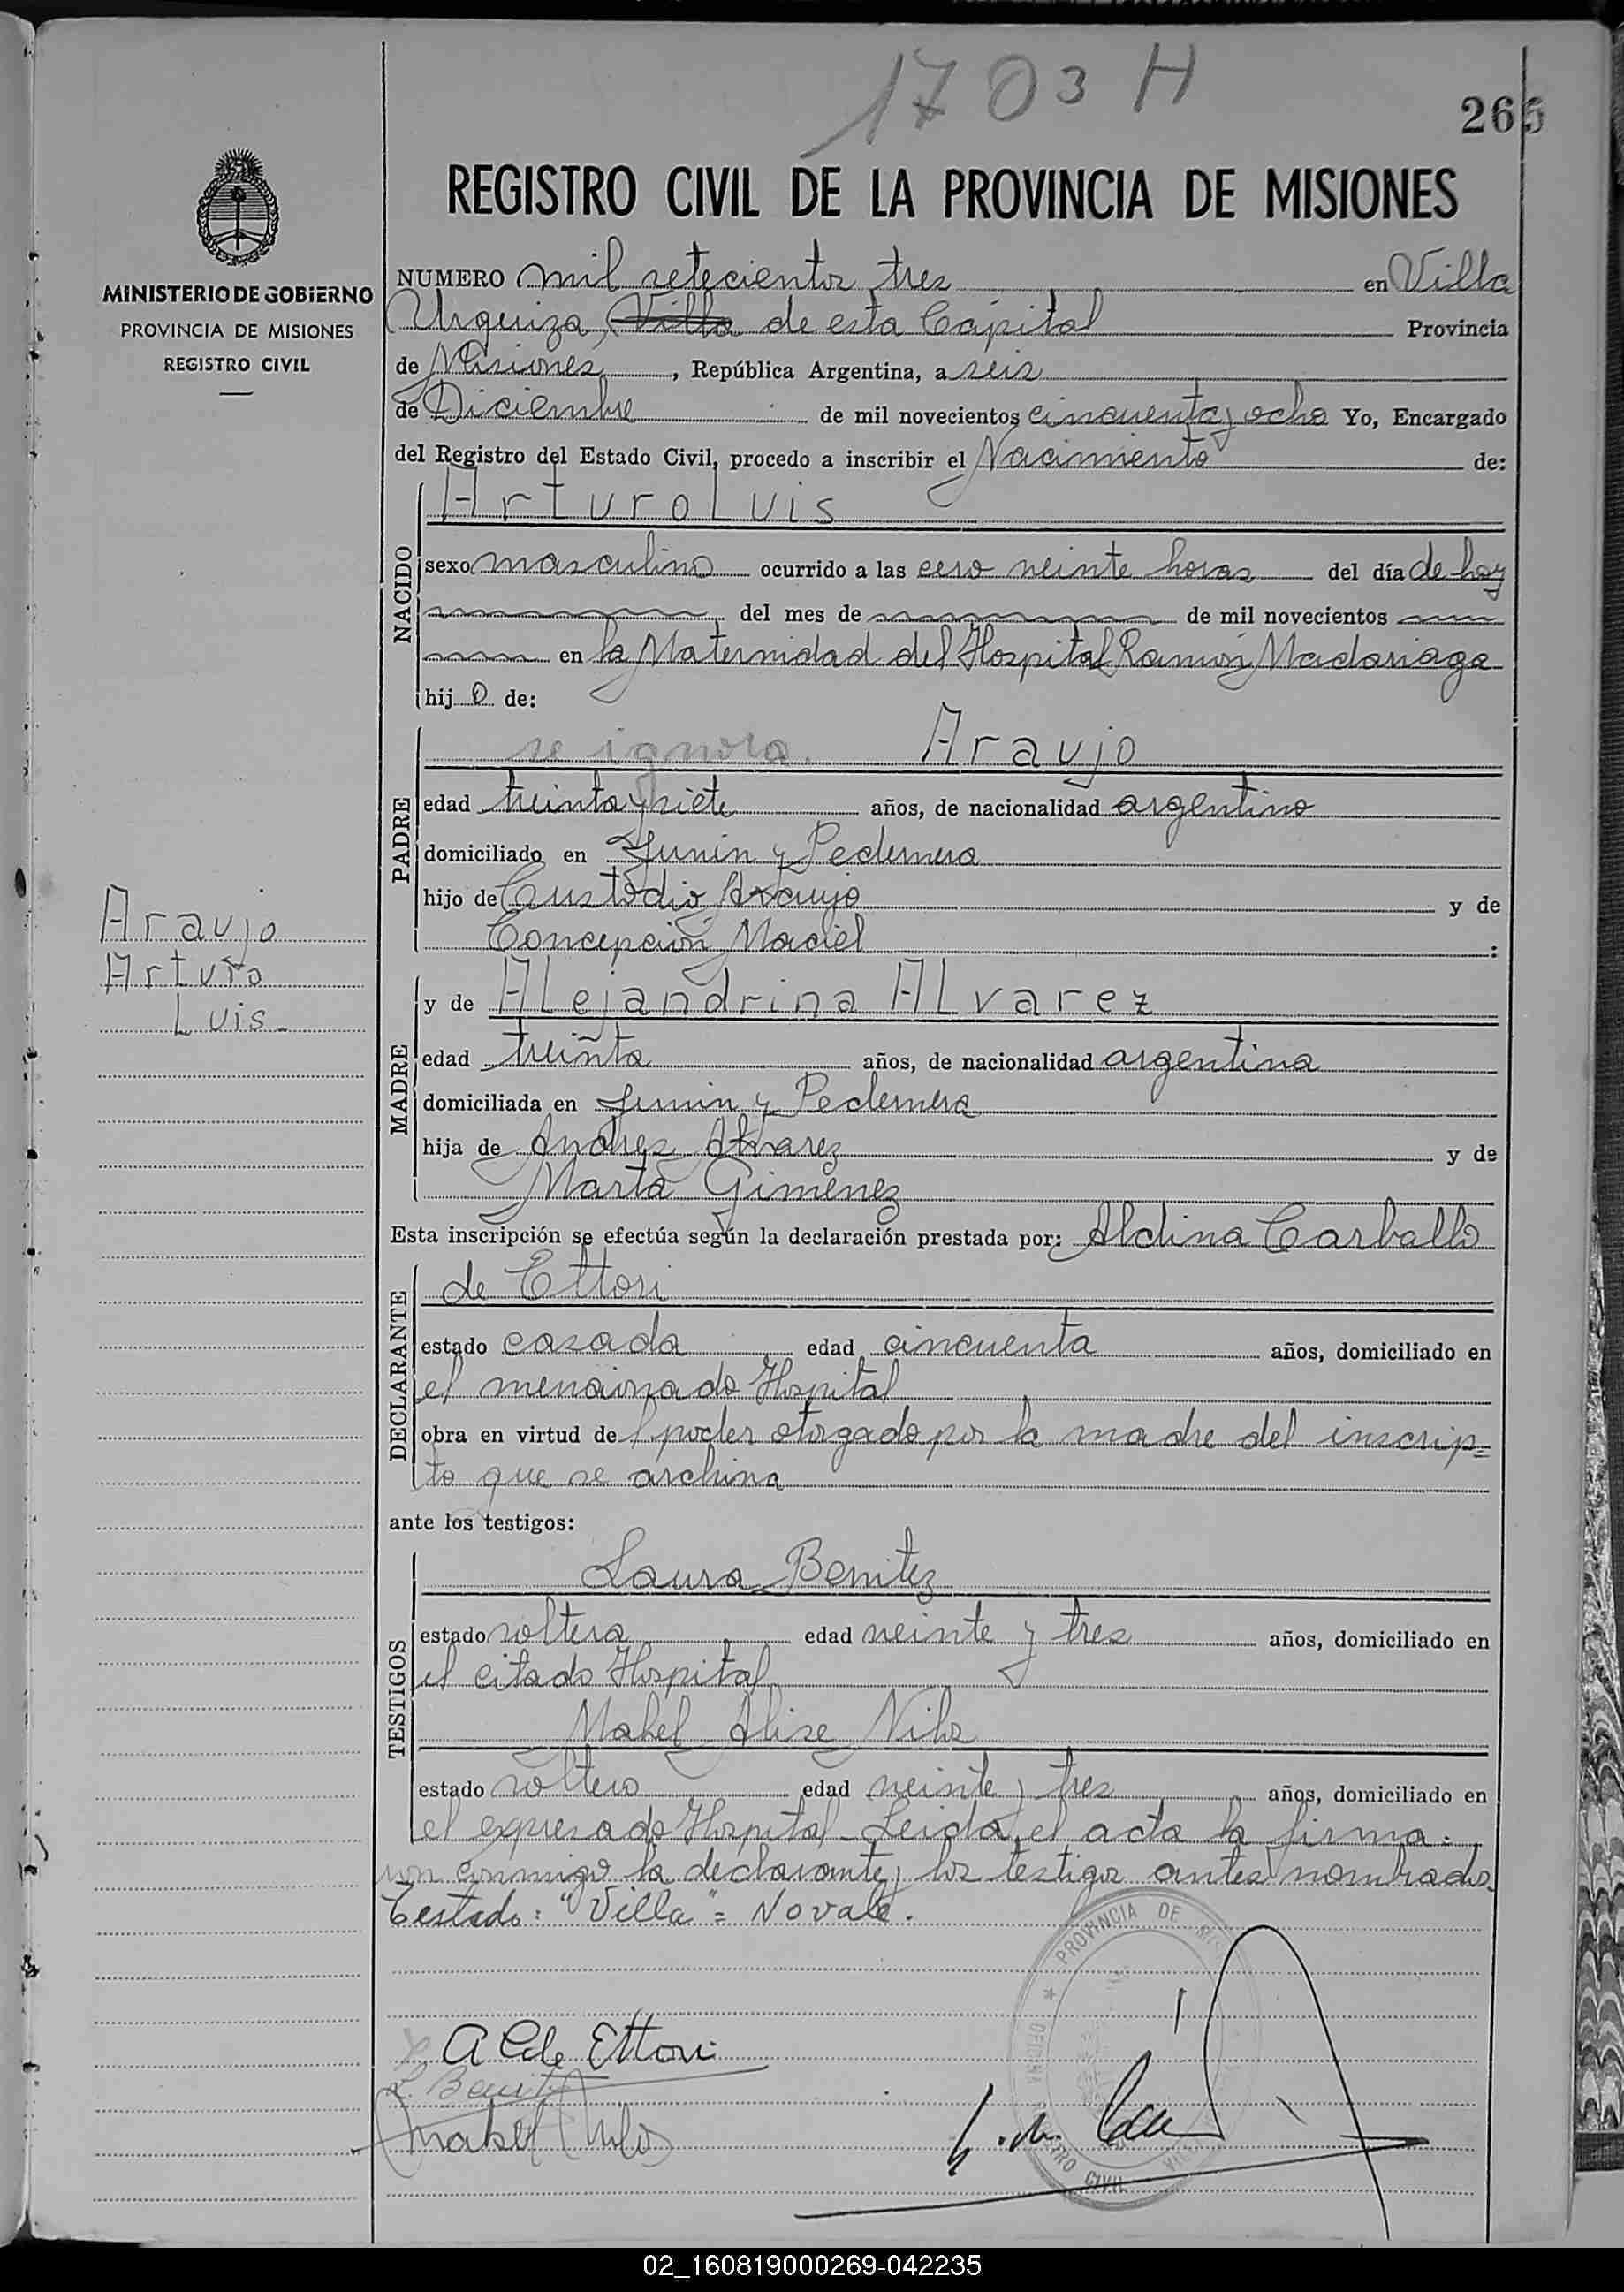 1703 H
265
REGISTRO CIVIL DE LA PROVINCIA DE MISIONES
MINISTERIO DE GOBIERNO
PROVINCIA DE MISIONES
REGISTRO CIVIL
NUMERO mil setecientos tres en Villa
Urquiza, Villa de esta Capital Provincia
de Misiones, República Argentina, a seis
de Diciembre de mil novecientos cincuenta y ocho Yo, Encargado
del Registro del Estado Civil, procedo a inscribir el Nacimiento de:
NACIDO
Arturo Luis
sexo masculino ocurrido a las cero veinte horas del día de hoy
del mes de de mil novecientos
en la Maternidad del Hospital Ramón Madariaga
hijo de:
PADRE
se ignora. Araujo
edad treinta y siete años, de nacionalidad argentino
domiciliado en Junin y Pedernera
hijo de Custodio Araujo y de
Concepción Maciel :
Araujo
Arturo
Luis
MADRE
y de Alejandrina Alvarez
edad treinta años, de nacionalidad argentina
domiciliada en Junin y Pedernera
hija de Andres Alvarez y de
Marta Gimenez
Esta inscripción se efectúa según la declaración prestada por: Aldina Carballo
DECLARANTE
de Ettori
estado casada edad cincuenta años, domiciliado en
el mencionado Hospital
obra en virtud del poder otorgado por la madre del inscrip=
to que se archiva
ante los testigos:
TESTIGOS
Laura Benitez
estado soltera edad veinte y tres años, domiciliado en
el citado Hospital
Mabel Alise
estado soltero edad veinte y tres años, domiciliado en
el expresado Hospital - Leida el acta la firma=
ron conmigo la declarante y los testigos antes nombrados.
Testado: "Villa" = No vale.
PROVINCIA DE
OFICINA
CIVIL
Ettori
L. Benitez
Mabel
02_160819000269-042235